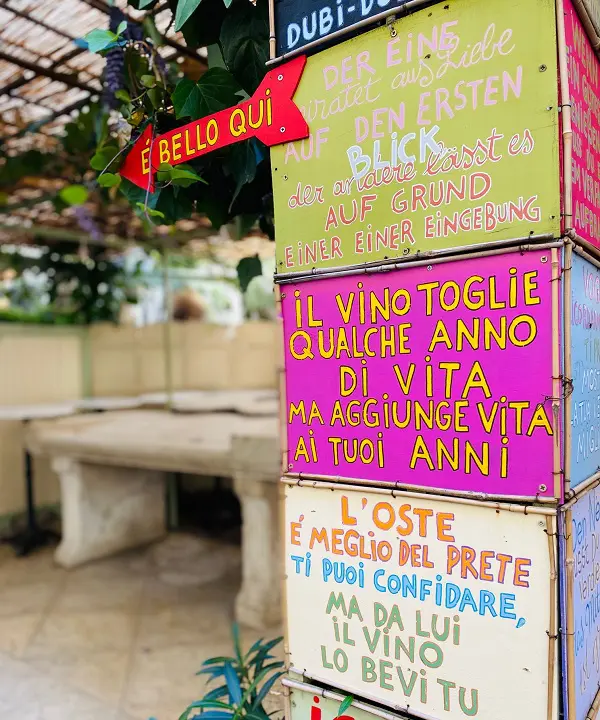 DUBI-DU
É BELLO QUI
DER EINE
heiratet aus Liebe
AUF DEN ERSTEN
BLICK,
der andere lässt es
AUF GRUND
EINER EINER EINGEBUNG
IL VINO TOGLIE
QUALCHE ANNO
DI VITA
MA AGGIUNGE VITA
AI TUOI ANNI
L'OSTE
É MEGLIO DEL PRETE
TI PUOI CONFIDARE,
MA DA LUI
IL VINO
LO BEVI TU